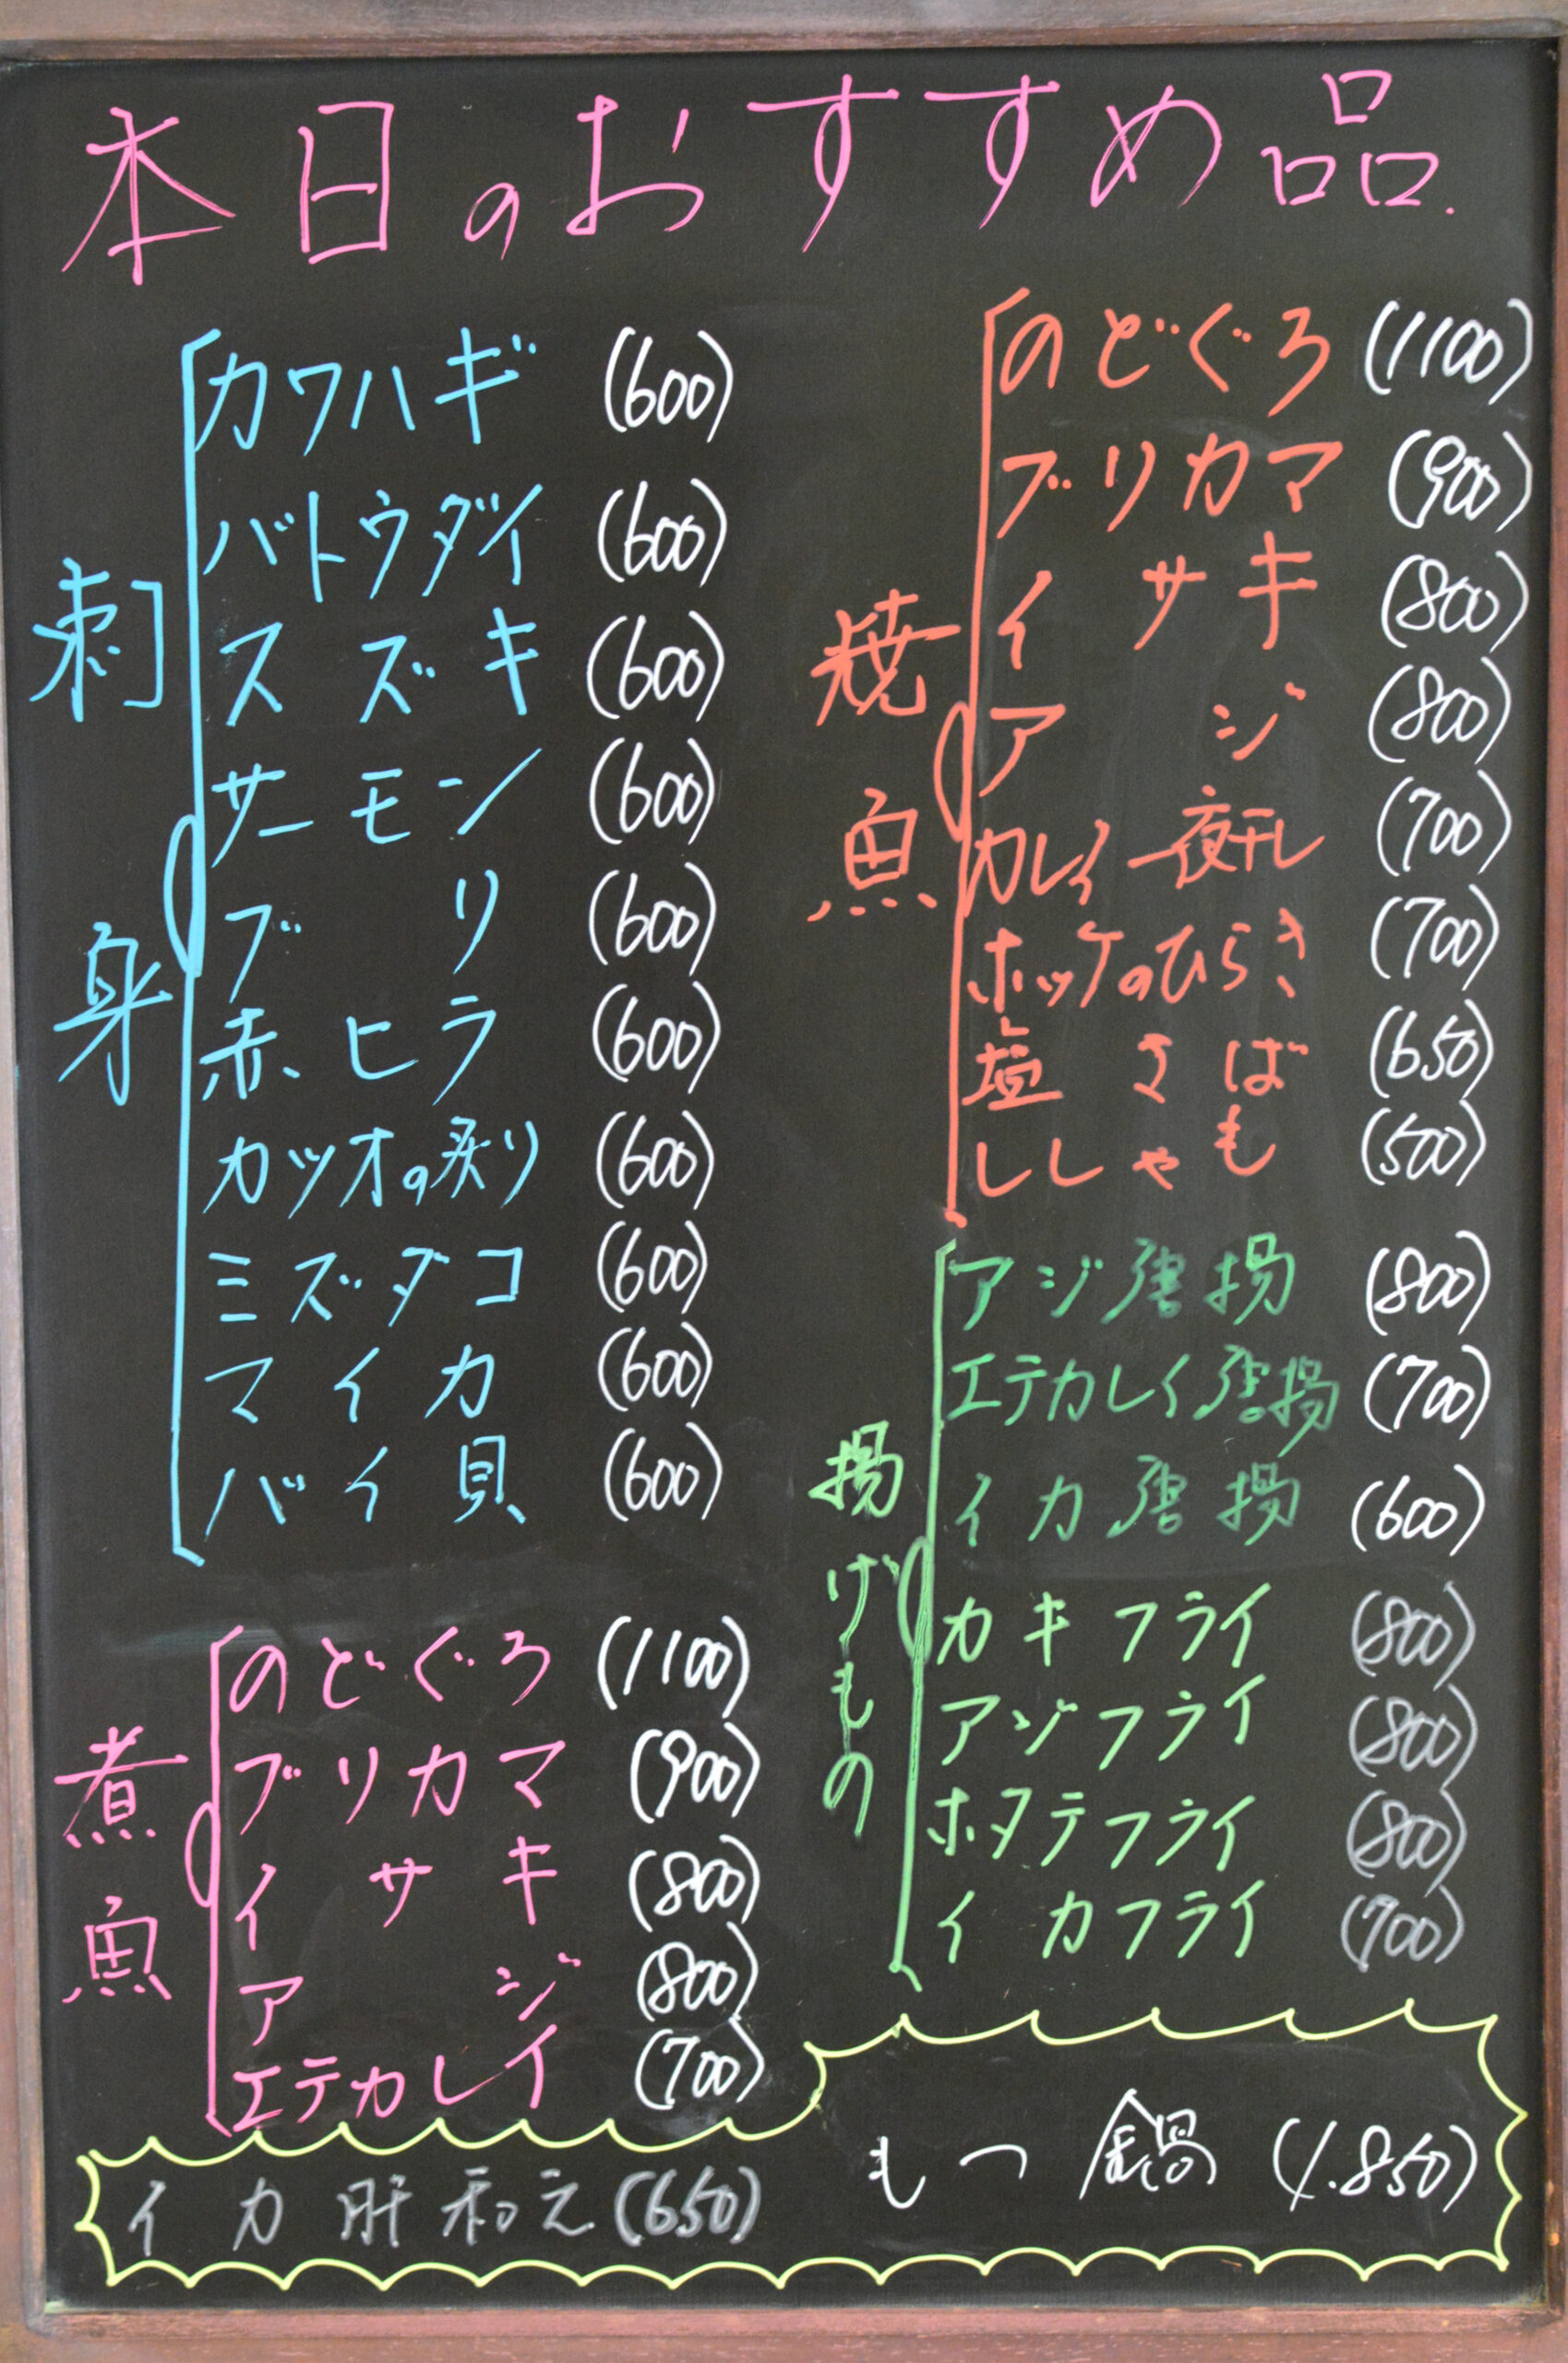 本日のおすすめ品.
刺身
カワハギ (600)
バトウダイ (600)
スズキ (600)
サーモン (600)
ブリ (600)
赤ヒラ (600)
カツオの炙り (600)
ミズダコ (600)
マイカ (600)
バイ貝 (600)
煮魚
のどぐろ (1100)
ブリカマ (900)
イサキ (800)
アジ (800)
エテカレイ (700)
焼魚
のどぐろ (1100)
ブリカマ (900)
イサキ (800)
アジ (800)
カレイ一夜干し (700)
ホッケのひらき (700)
塩さば (650)
ししゃも (500)
揚げもの
アジ唐揚 (800)
エテカレイ唐揚 (700)
イカ唐揚 (600)
カキフライ (800)
アジフライ (800)
ホタテフライ (800)
イカフライ (700)
イカ肝和え (650)
もつ鍋 (1.850)